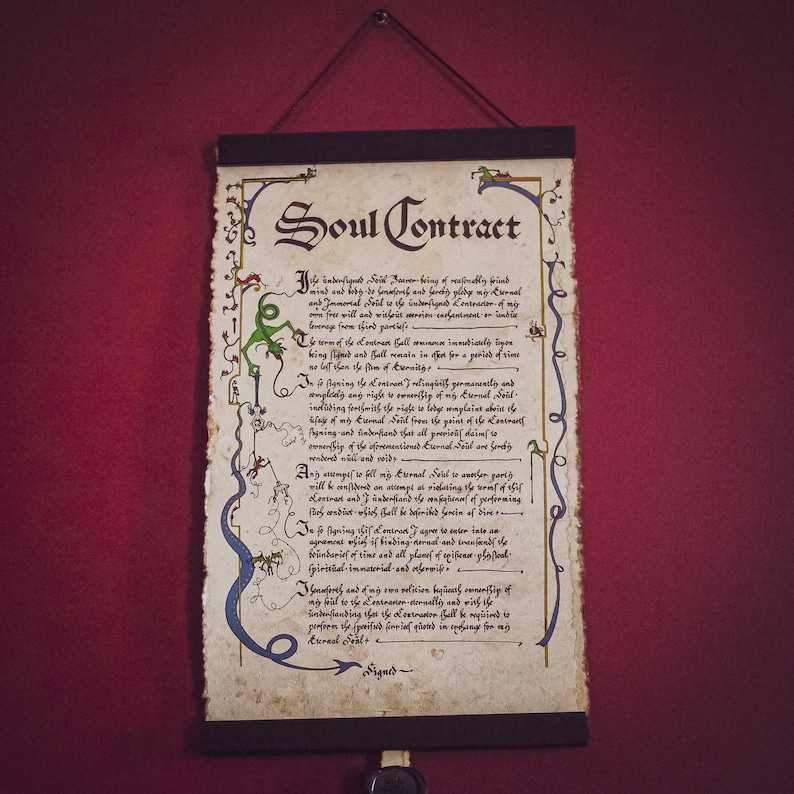 Soul Contract
I the undersigned Soul Bearer · being of reasonably sound
mind and body · do henceforth and hereby pledge my Eternal
and Immortal Soul to the undersigned Contractor · of my
own free will and without coersion · enchantment · or undue
leverage from third parties
The term of the Contract shall commence immediately upon
being signed and shall remain in effect for a period of time
no less than the sum of Eternity
In so signing the Contract I relinquish permanently and
completely any right to ownership of my Eternal Soul ·
including forthwith the right to lodge complaint about the
usage of my Eternal Soul from the point of the Contracts
signing · and understand that all previous claims to
ownership of the aforementioned Eternal Soul are hereby
rendered null and void
Any attempts to sell my Eternal Soul to another party
will be considered an attempt at violating the terms of this
Contract and I understand the consequences of performing
such conduct · which shall be described herein as dire
In so signing this Contract I agree to enter into an
agreement which is binding · eternal · and transcends the
boundaries of time and all planes of existence · physical ·
spiritual · immaterial · and otherwise
I henceforth and of my own volition bequeath ownership of
my soul to the Contractor · eternally and with the
understanding that the Contractor shall be required to
perform the specified services quoted in exchange for my
Eternal Soul
Signed